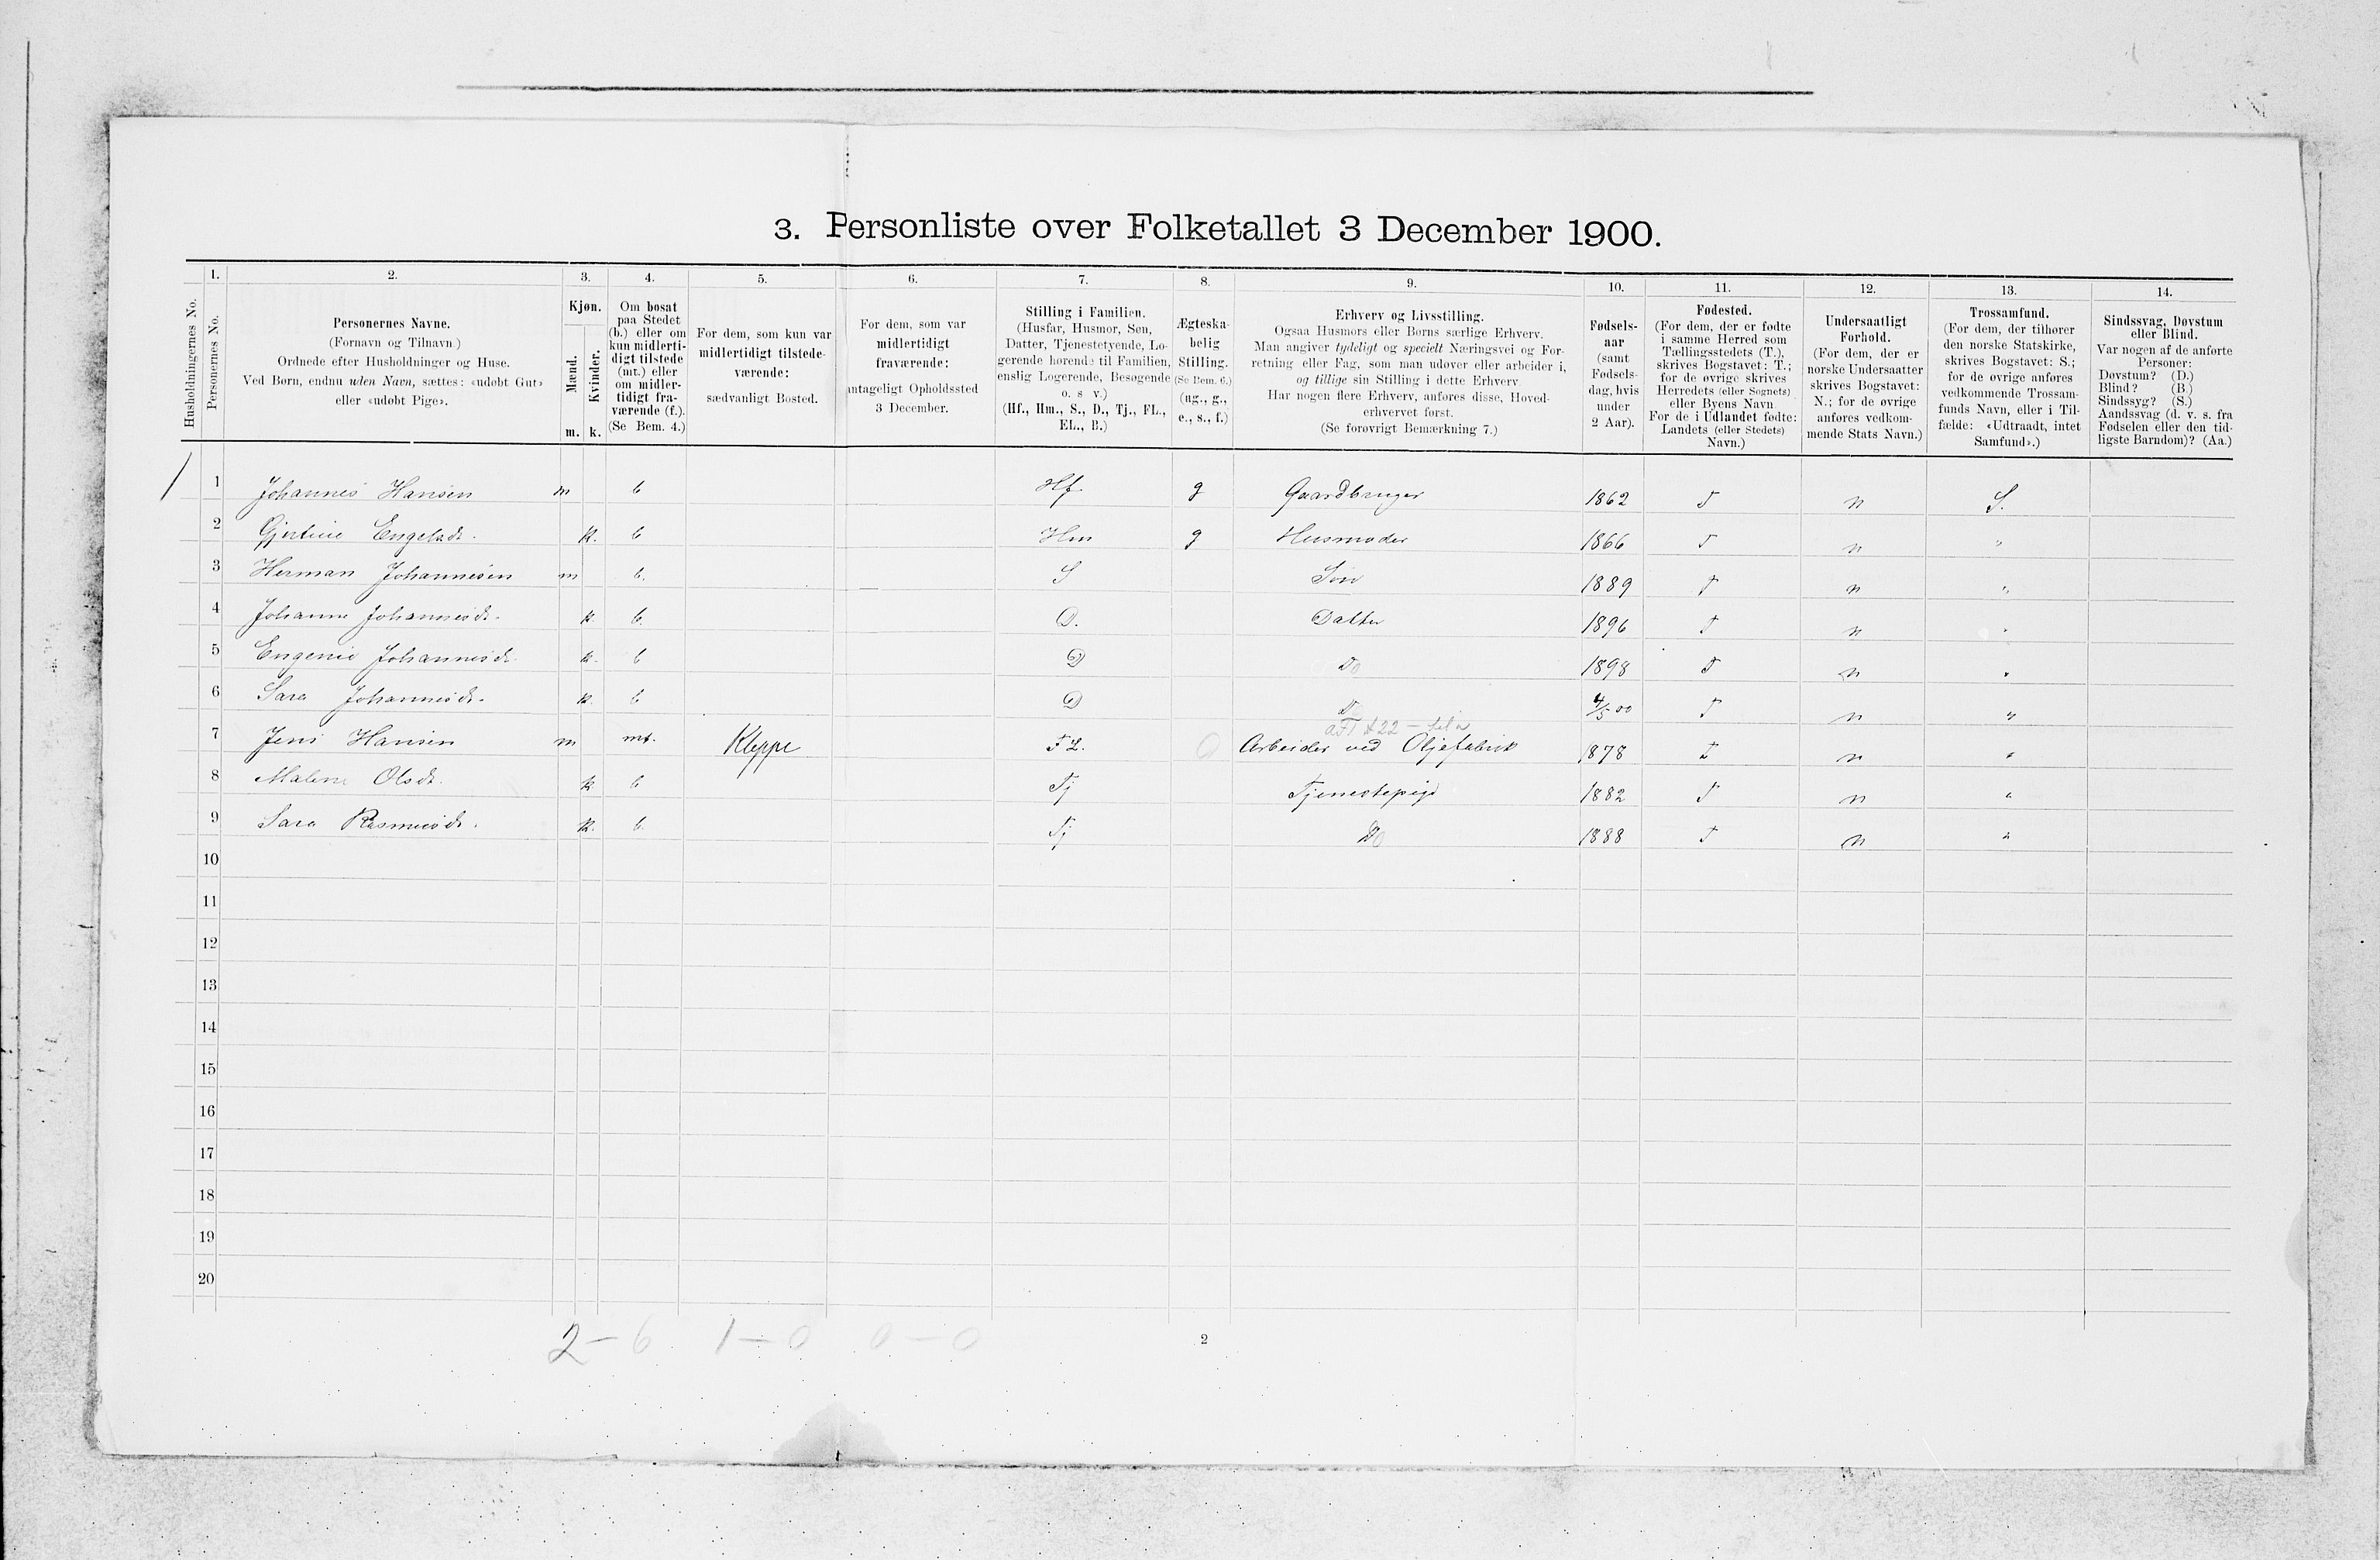 3. Personliste over Folketallet 3 December 1900.
1. 2. 3. 4. 5. 6. 7. 8. 9. 10. 11. 12. 13. 14.
Husholdningernes No.
Personernes No.
Personernes Navne.
(Fornavn og Tilnavn)
Ordnede efter Husholdninger og Huse.
Ved Børn, endnu uden Navn, sættes: «udøbt Gut»
eller «udøbt Pige».
Kjøn.
Mænd.
Kvinder.
m. k.
Om bosat
paa Stedet
(b.) eller om
kun midlerti-
digt tilstede
(mt.) eller
om midler-
tidigt fra-
værende (f.).
(Se Bem. 4.)
For dem, som kun var
midlertidigt tilstede-
værende:
sædvanligt Bosted.
For dem, som var
midlertidigt
fraværende:
antageligt Opholdssted
3 December.
Stilling i Familien.
(Husfar, Husmor, Søn,
Datter, Tjenestetyende, Lo-
gerende hørende til Familien,
enslig Logerende, Besøgende
o. s v.)
(Hf., Hm., S., D., Tj., FL.,
EL., B.)
Ægteska-
belig
Stilling.
(Se Bem. 6.)
(ug., g.,
e., s., f.)
Erhverv og Livsstilling.
Ogsaa Husmors eller Børns særlige Erhverv.
Man angiver tydeligt og specielt Næringsvei og For-
retning eller Fag, som man udøver eller arbeider i,
og tillige sin Stilling i dette Erhverv.
Har nogen flere Erhverv, anføres disse, Hoved-
erhvervet først.
(Se forøvrigt Bemærkning 7.)
Fødsels-
aar
(samt
Fødsels-
dag, hvis
under
2 Aar).
Fødested.
(For dem, der er fødte
i samme Herred som
Tællingsstedets (T.),
skrives Bogstavet: T.;
for de øvrige skrives
Herredets (eller Sognets)
eller Byens Navn
For de i Udlandet fødte:
Landets (eller Stedets)
Navn.)
Undersaatligt
Forhold.
(For dem, der er
norske Undersaatter
skrives Bogstavet:
N.; for de øvrige
anføres vedkom-
mende Stats Navn.)
Trossamfund.
(For dem, der tilhører
den norske Statskirke,
skrives Bogstavet: S.;
for de øvrige anføres
vedkommende Trossam-
funds Navn, eller i Til-
fælde: «Udtraadt, intet
Samfund».)
Sindssvag, Døvstum
eller Blind.
Var nogen af de anførte
Personer:
Døvstum? (D.)
Blind? (B.)
Sindssyg? (S.)
Aandssvag (d. v. s. fra
Fødselen eller den tid-
ligste Barndom)? (Aa.)
1 Johannes Hansen m b Hf. g Gaardbruger 1862 T n S.
2 Gjertine Engelsdt. k. b Hm g Husmoder 1866 T n "
3 Herman Johannesen m b. S Søn 1889 T n "
4 Johanne Johannesdt. k. b. D. Datter 1896 T n "
5 Engenie Johannesdt. k. b D Do 1898 T n "
6 Sara Johannesdt. k b D Do 4/5 00 T n "
7 Jens Hansen m mt. Kleppe F L. Arbeider ved Oljefabrik 1878 T n "
8 Malene Olsdt. k b Tj Tjenestepige 1882 T n "
9 Sara Rasmusdt. k. b. Tj Do 1888 T n "
10
11
12
13
14
15
16
17
18
19
20
2 – 6 1 – 0 0 – 0
2